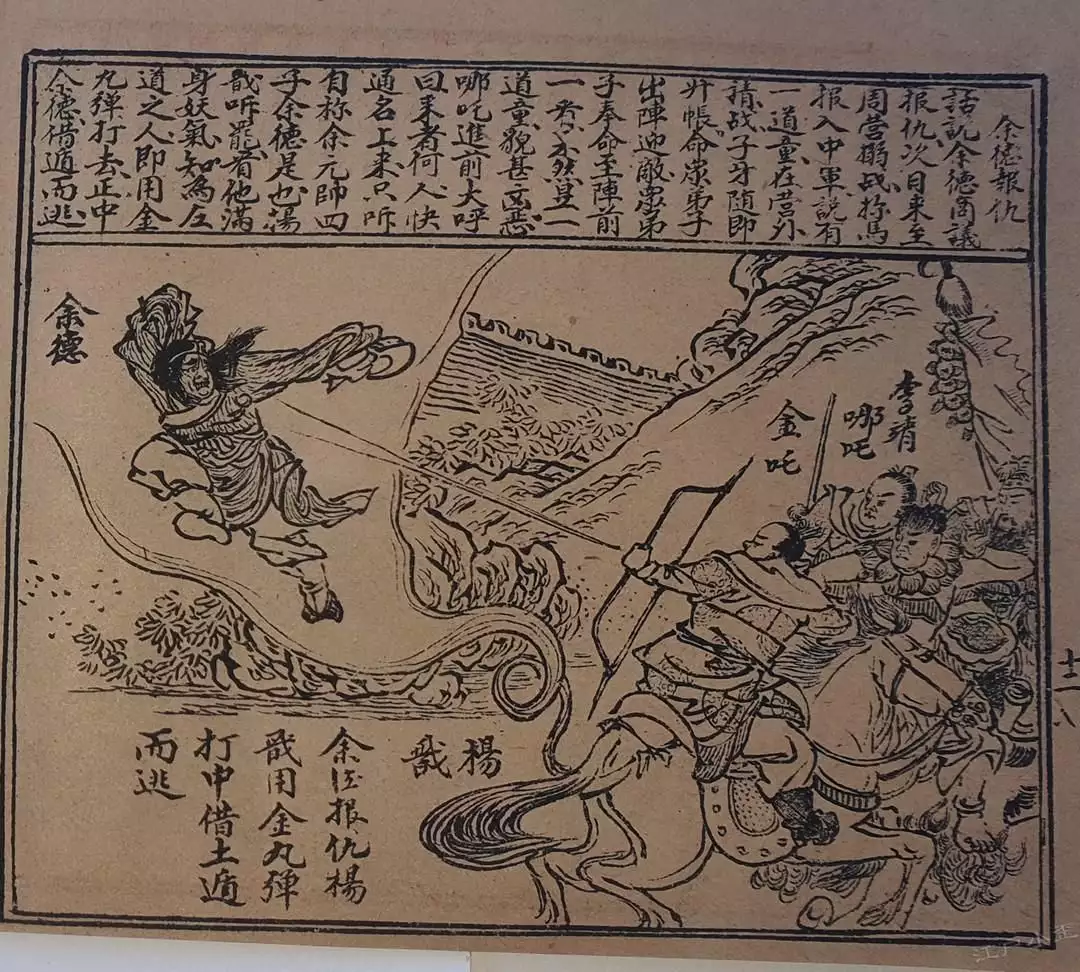 余德報仇
話説余德商議
报仇次日来至
周营搦战探馬
报入中軍説有
一道童在营外
請战子牙随即
升帳命衆弟子
出陣迎敵衆弟
子奉命至陣前
一看果然見一
道童貌甚凶惡
哪吒進前大呼
曰来者何人快
通名上来只听
自称余元帥四
子余德是也楊
戬听罷看他滿
身妖氣知為左
道之人即用金
丸弹打去正中
余德借遁而逃
李靖
哪吒
金吒
余德
楊戬
余德报仇楊
戬用金丸弹
打中借土遁
而逃